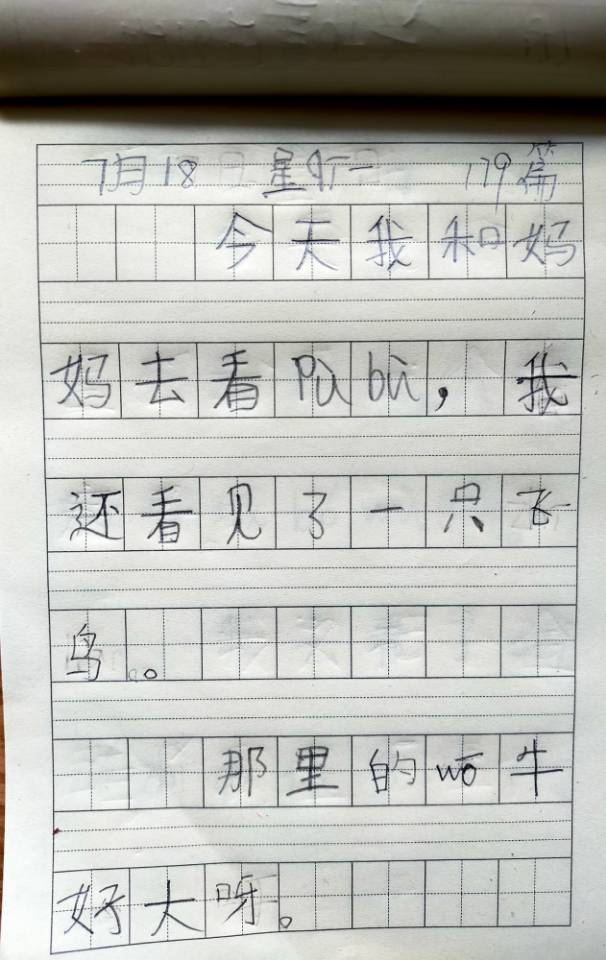 7月18 星期一 179篇
今天我和妈
妈去看pù bù，我
还看见了一只飞
鸟。
那里的wō牛
好大呀。